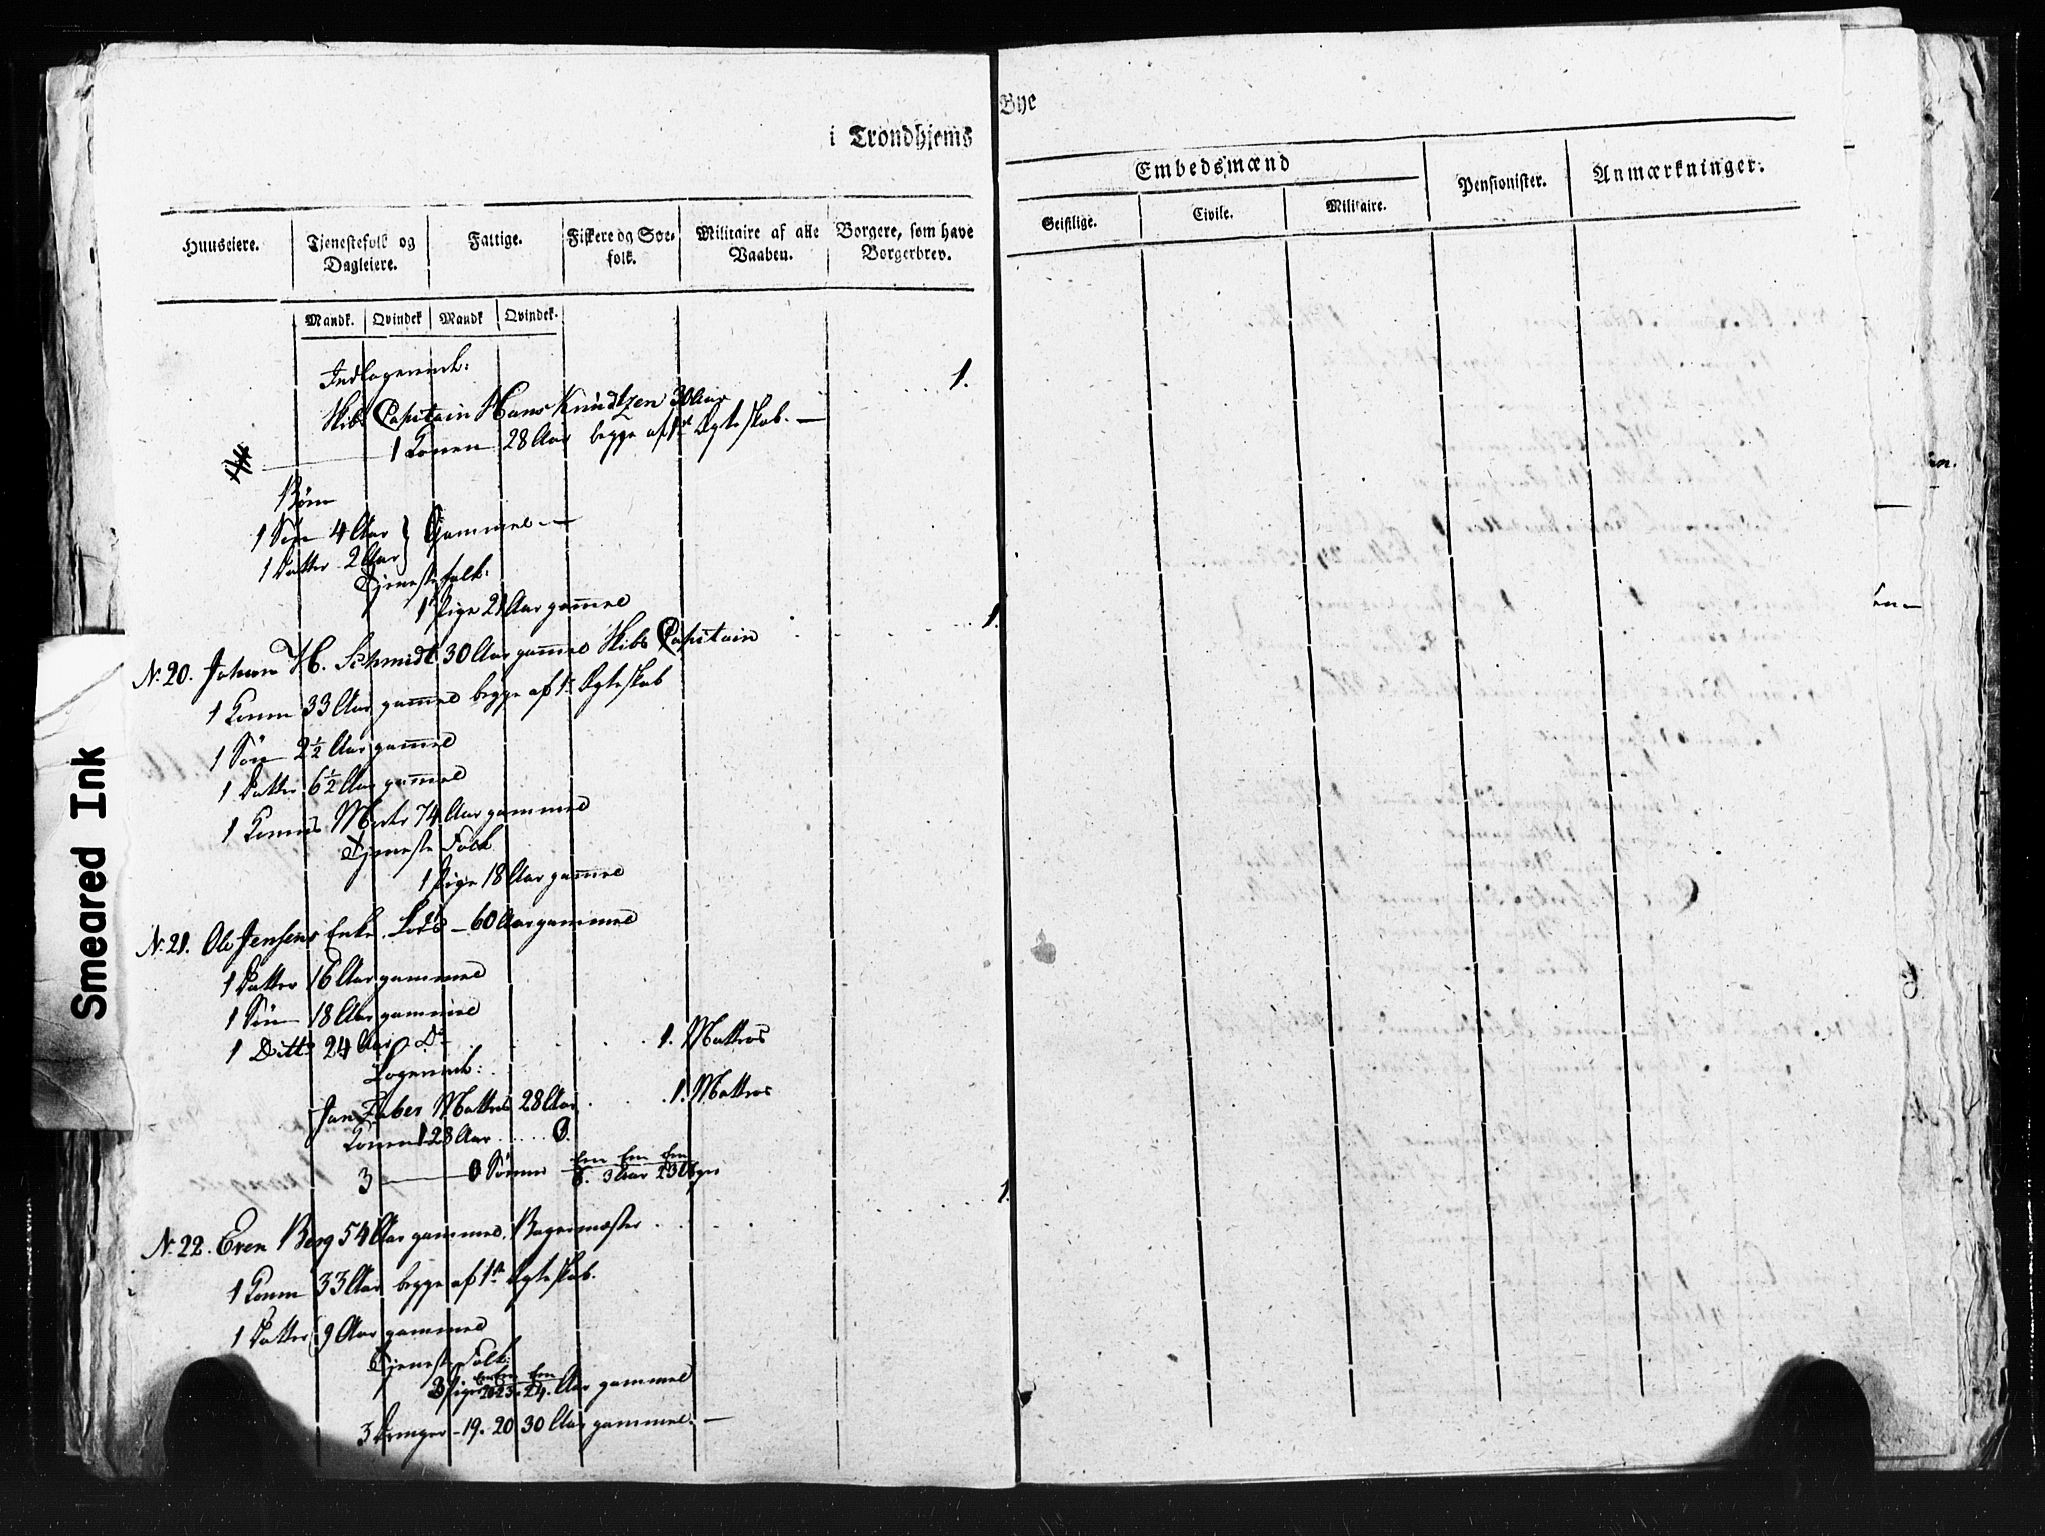 i Trondhjems Bye
Embedsmænd
Pensionister.
Anmærkninger.
Geistlige.
Civile.
Militaire.
Huuseiere.
Tjenestefolk og Dagleiere.
Fattige.
Fiskere og Søefolk.
Militaire af alle Vaaben.
Borgere, som have Borgerbrev.
Mandk. Qvindek Mandk Qvindek.
Indlogerende:
Skibs Capitain Hans Knudtzen 30 Aar 1.
1 Konen 28 Aar begge af 1te Ægteskab. —
Børn
1 Søn 4 Aar } Gammel —
1 Datter 2 Aar
Tjenestefolk:
1 Pige 21 Aar gammel
N. 20. Johan H. Schmidt 30 Aar gammel Skibs Capitain 1.
1 Konen 33 Aar gammel begge af 1te Ægteskab
1 Søn 2½ Aar gammel
1 Datter 6½ Aar gammel
1 Konens Moder 74 Aar gammel
Tjeneste Folk
1 Pige 18 Aar gammel
N. 21. Ole Jensens Enke — 60 Aar gammel
1 Datter 16 Aar gammel
1 Søn 18 Aar gammel
1 Ditto 24 Aar Do 1. Mattros
Logerende:
Jan Faber Mattros 28 Aar 1. Mattros
Konen 28 Aar
3 — Sønner 8. 3 Aar
N. 22. Even Berg 54 Aar gammel, Bagermester 1.
1 Konen 33 Aar begge af 1te Ægteskab.
1 Datter 9 Aar gammel
Tjeneste Folk:
3 Piger 20 23. 24. Aar gammel
3 Drenger — 19. 20 30 Aar gammel. —
Smeared Ink